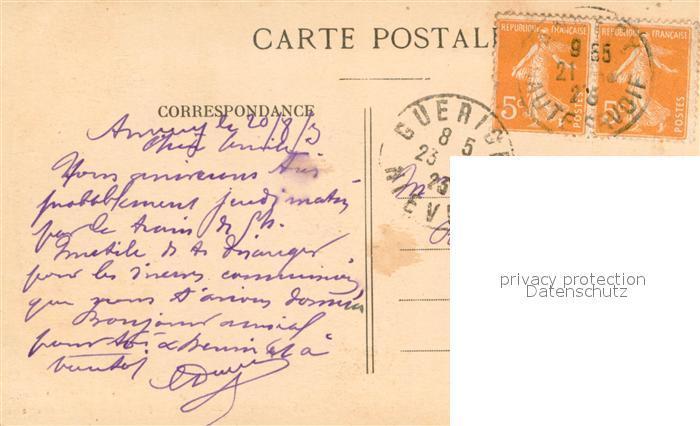 CARTE POSTAL
CORRESPONDANCE
RÉPUBLIQUE FRANÇAISE
5c
POSTES
RÉPUBLIQUE FRANÇAISE
5c
POSTES
9 65
21
GUERIG
8 5
23
23
NIEVR
le 20/8/
Cher
Nous arriverons très
probablement jeudi matin
par le train de 5h.
Inutile de te déranger
pour les diverses commissions
que nous t'avions données
Bonjour amical
pour toi &
privacy protection
Datenschutz